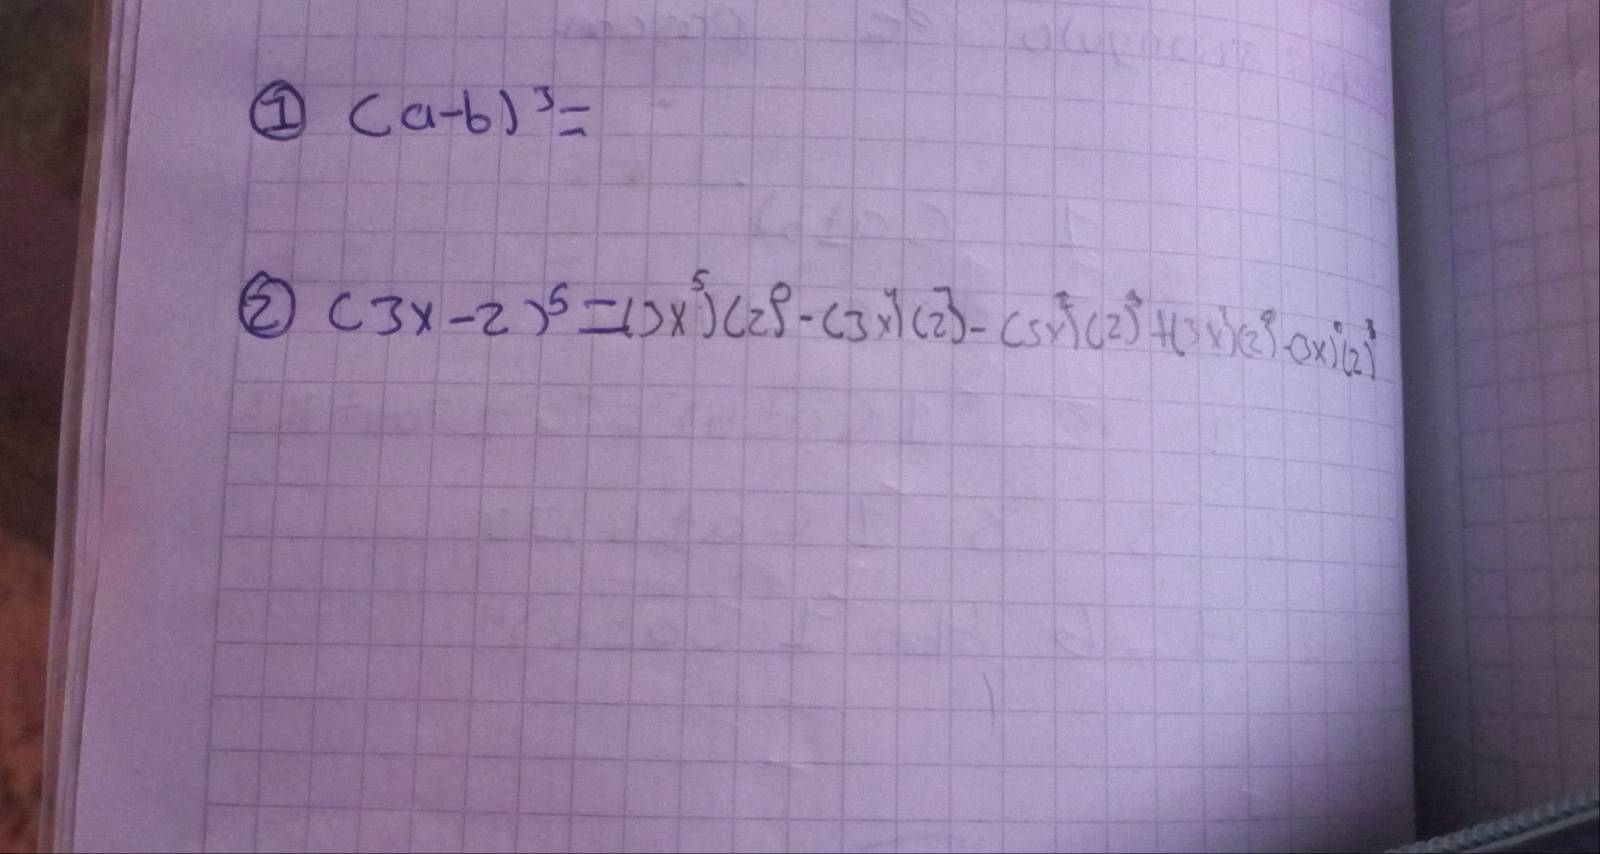 ① (a-b)³=
② (3x-2)⁵=(3x⁵)(2)⁰-(3x)⁴(2)¹-(3x)²(2)³+(3x)¹(2)⁴-(3x)⁰(2)³